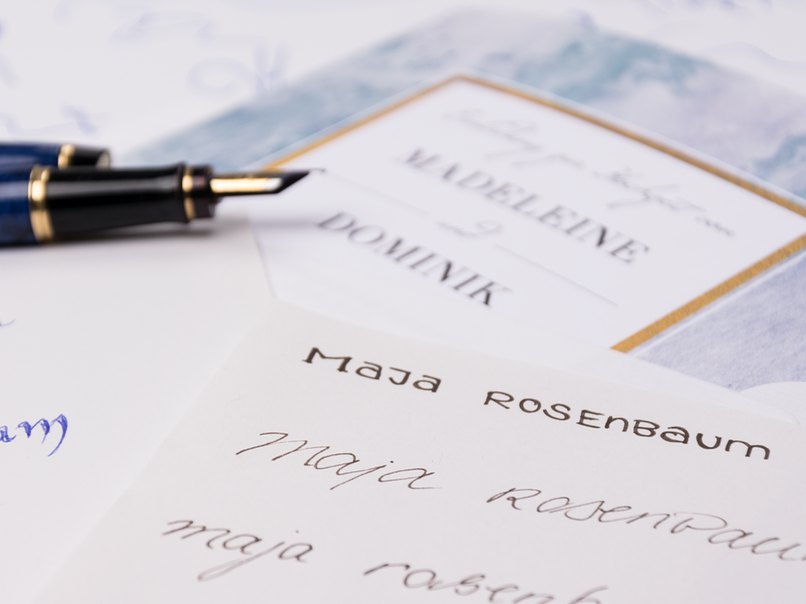 MADELEINE
DOMINIK
Maja ROSEnBaum
maja Rosenbau
maja rosenb